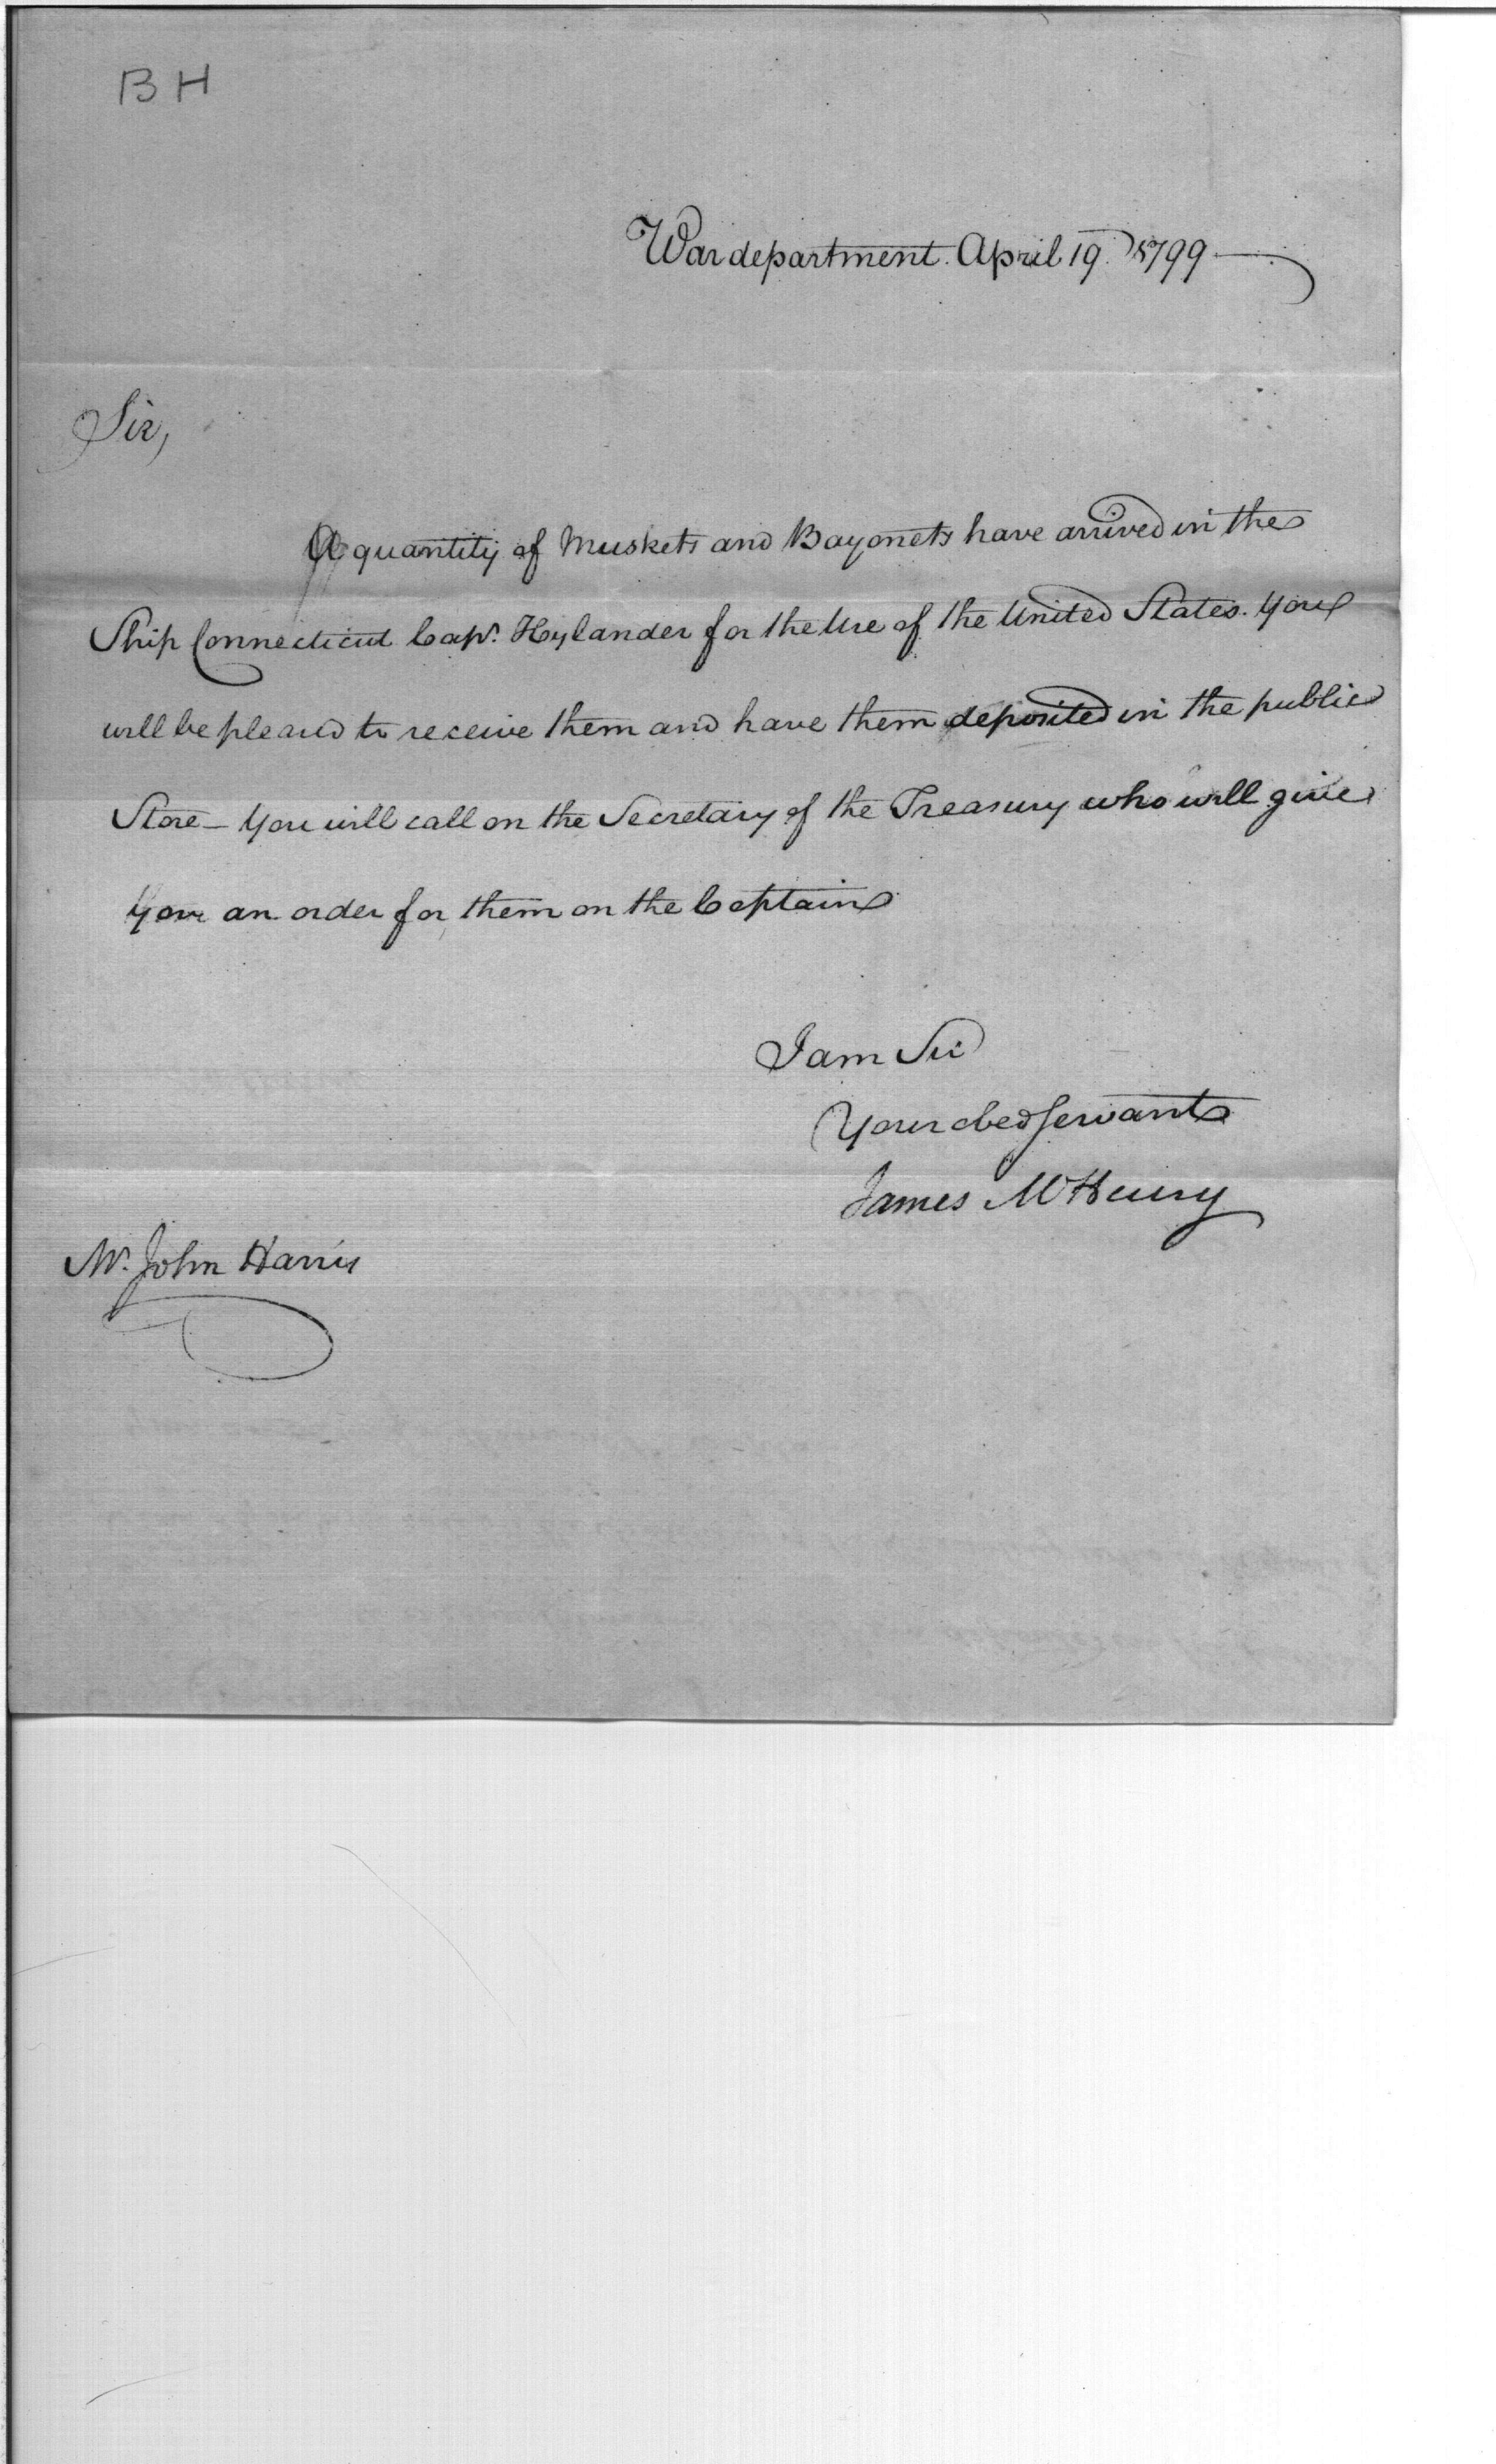 BH
War department. April 19. 1799
Sir,
A quantity of Muskets and Bayonets have arrived in the
Ship Connecticut Capt. Hylander for the Use of the United States. You
will be pleased to receive them and have them deposited in the public
Store - You will call on the Secretary of the Treasury who will give
You an order for them on the Captain
I am Sir
Your obed servant
James McHenry
Mr. John Harris